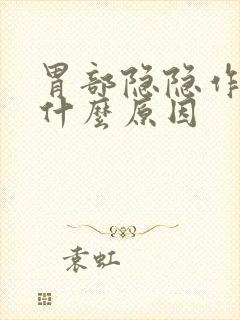 胃部隐隐作
什麼原因
袁虹